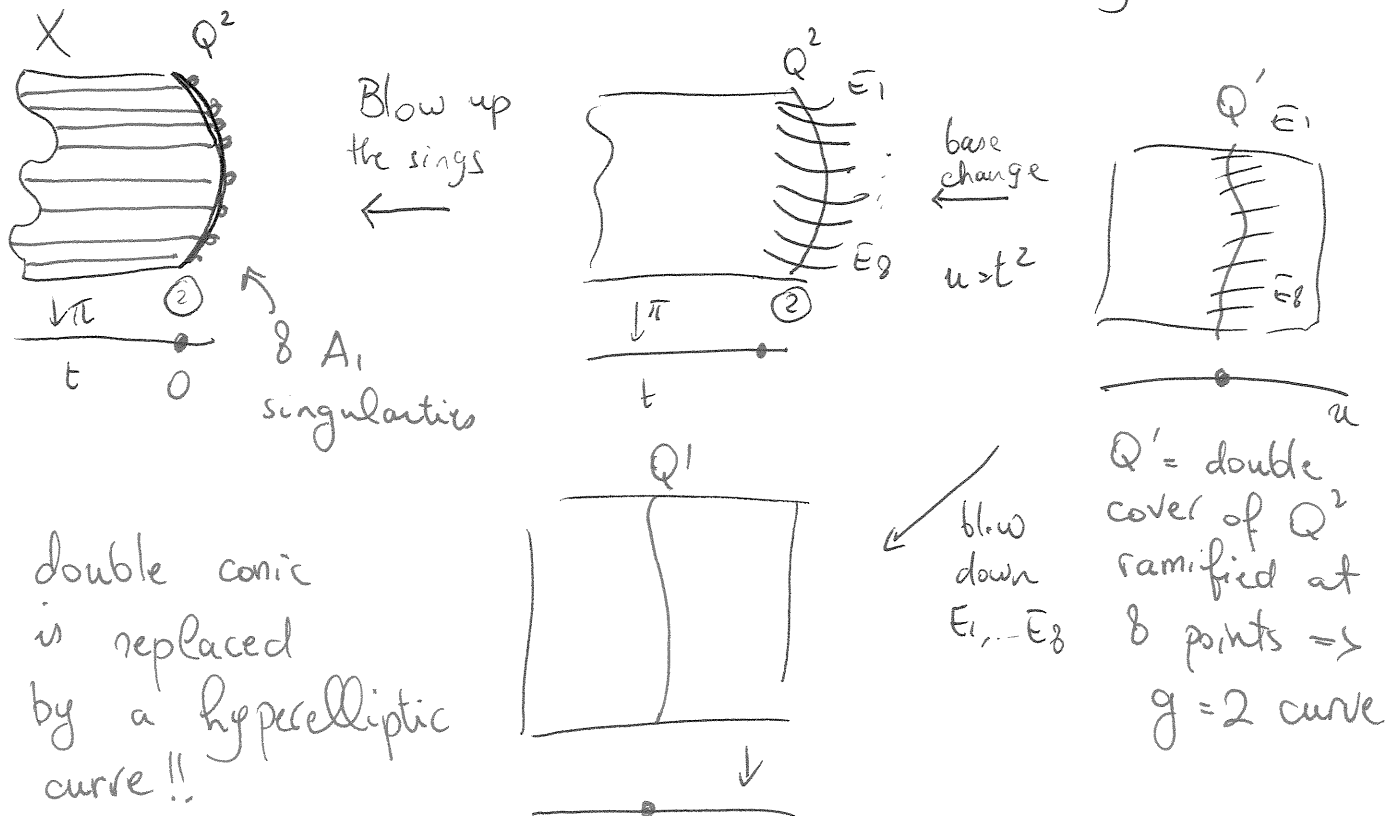 X
Q²
↓π
②
t
0
8 A₁
singularities
Blow up
the sings
Q²
E₁
E₈
↓π
②
t
base
change
u=t²
Q' E₁
E₈
u
Q' = double
cover of Q²
ramified at
8 points =>
g = 2 curve
blow
down
E₁,...E₈
Q'
double conic
is replaced
by a hyperelliptic
curve!!